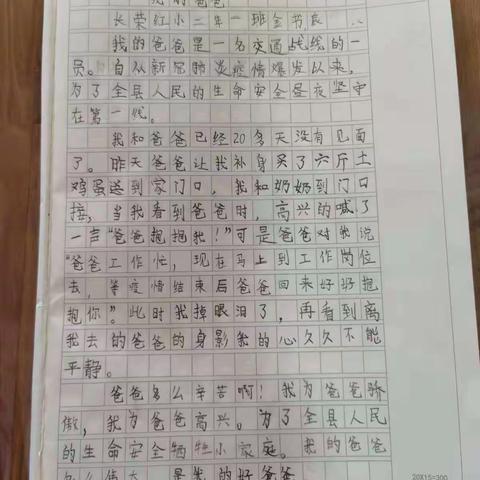 我的爸爸
长荣红小二年一班金书良
我的爸爸是一名交通战线的一
员。自从新冠肺炎疫情爆发以来,
为了全县人民的生命安全昼夜坚守
在第一线。
我和爸爸已经20多天没有见面
了。昨天爸爸让我补身买了六斤土
鸡蛋送到家门口,我和奶奶到门口
接,当我看到爸爸时,高兴的喊了
一声“爸爸抱抱我!”可是爸爸对我说
“爸爸工作忙,现在马上到工作岗位
去,等疫情结束后爸爸回来好好抱
抱你”。此时我掉眼泪了,再看到离
我去的爸爸的身影我的心久久不能
平静。
爸爸多么辛苦啊!我为爸爸骄
傲,我为爸爸高兴。为了全县人民
的生命安全牺牲小家庭。我的爸爸
多么伟大,是我的好爸爸
20X15=300